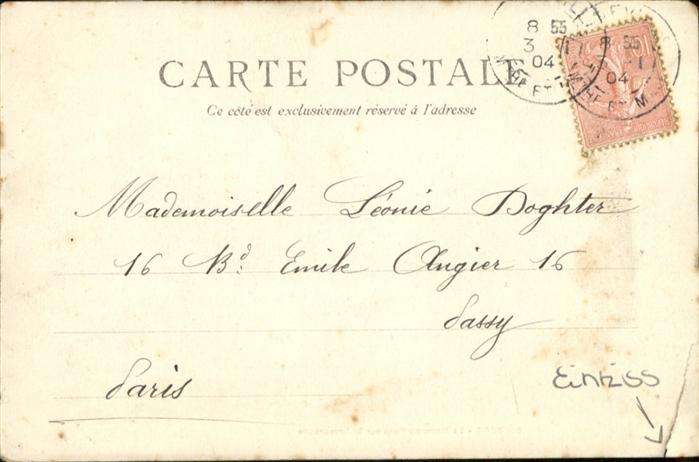 CARTE POSTALE
Ce côté est exclusivement réservé à l'adresse
8 55
3 11
04
ET M
8 55
11
04
ET M
Mademoiselle Léonie Doghter
16 Bd. Emile Augier 16
Passy
Paris
Einriss